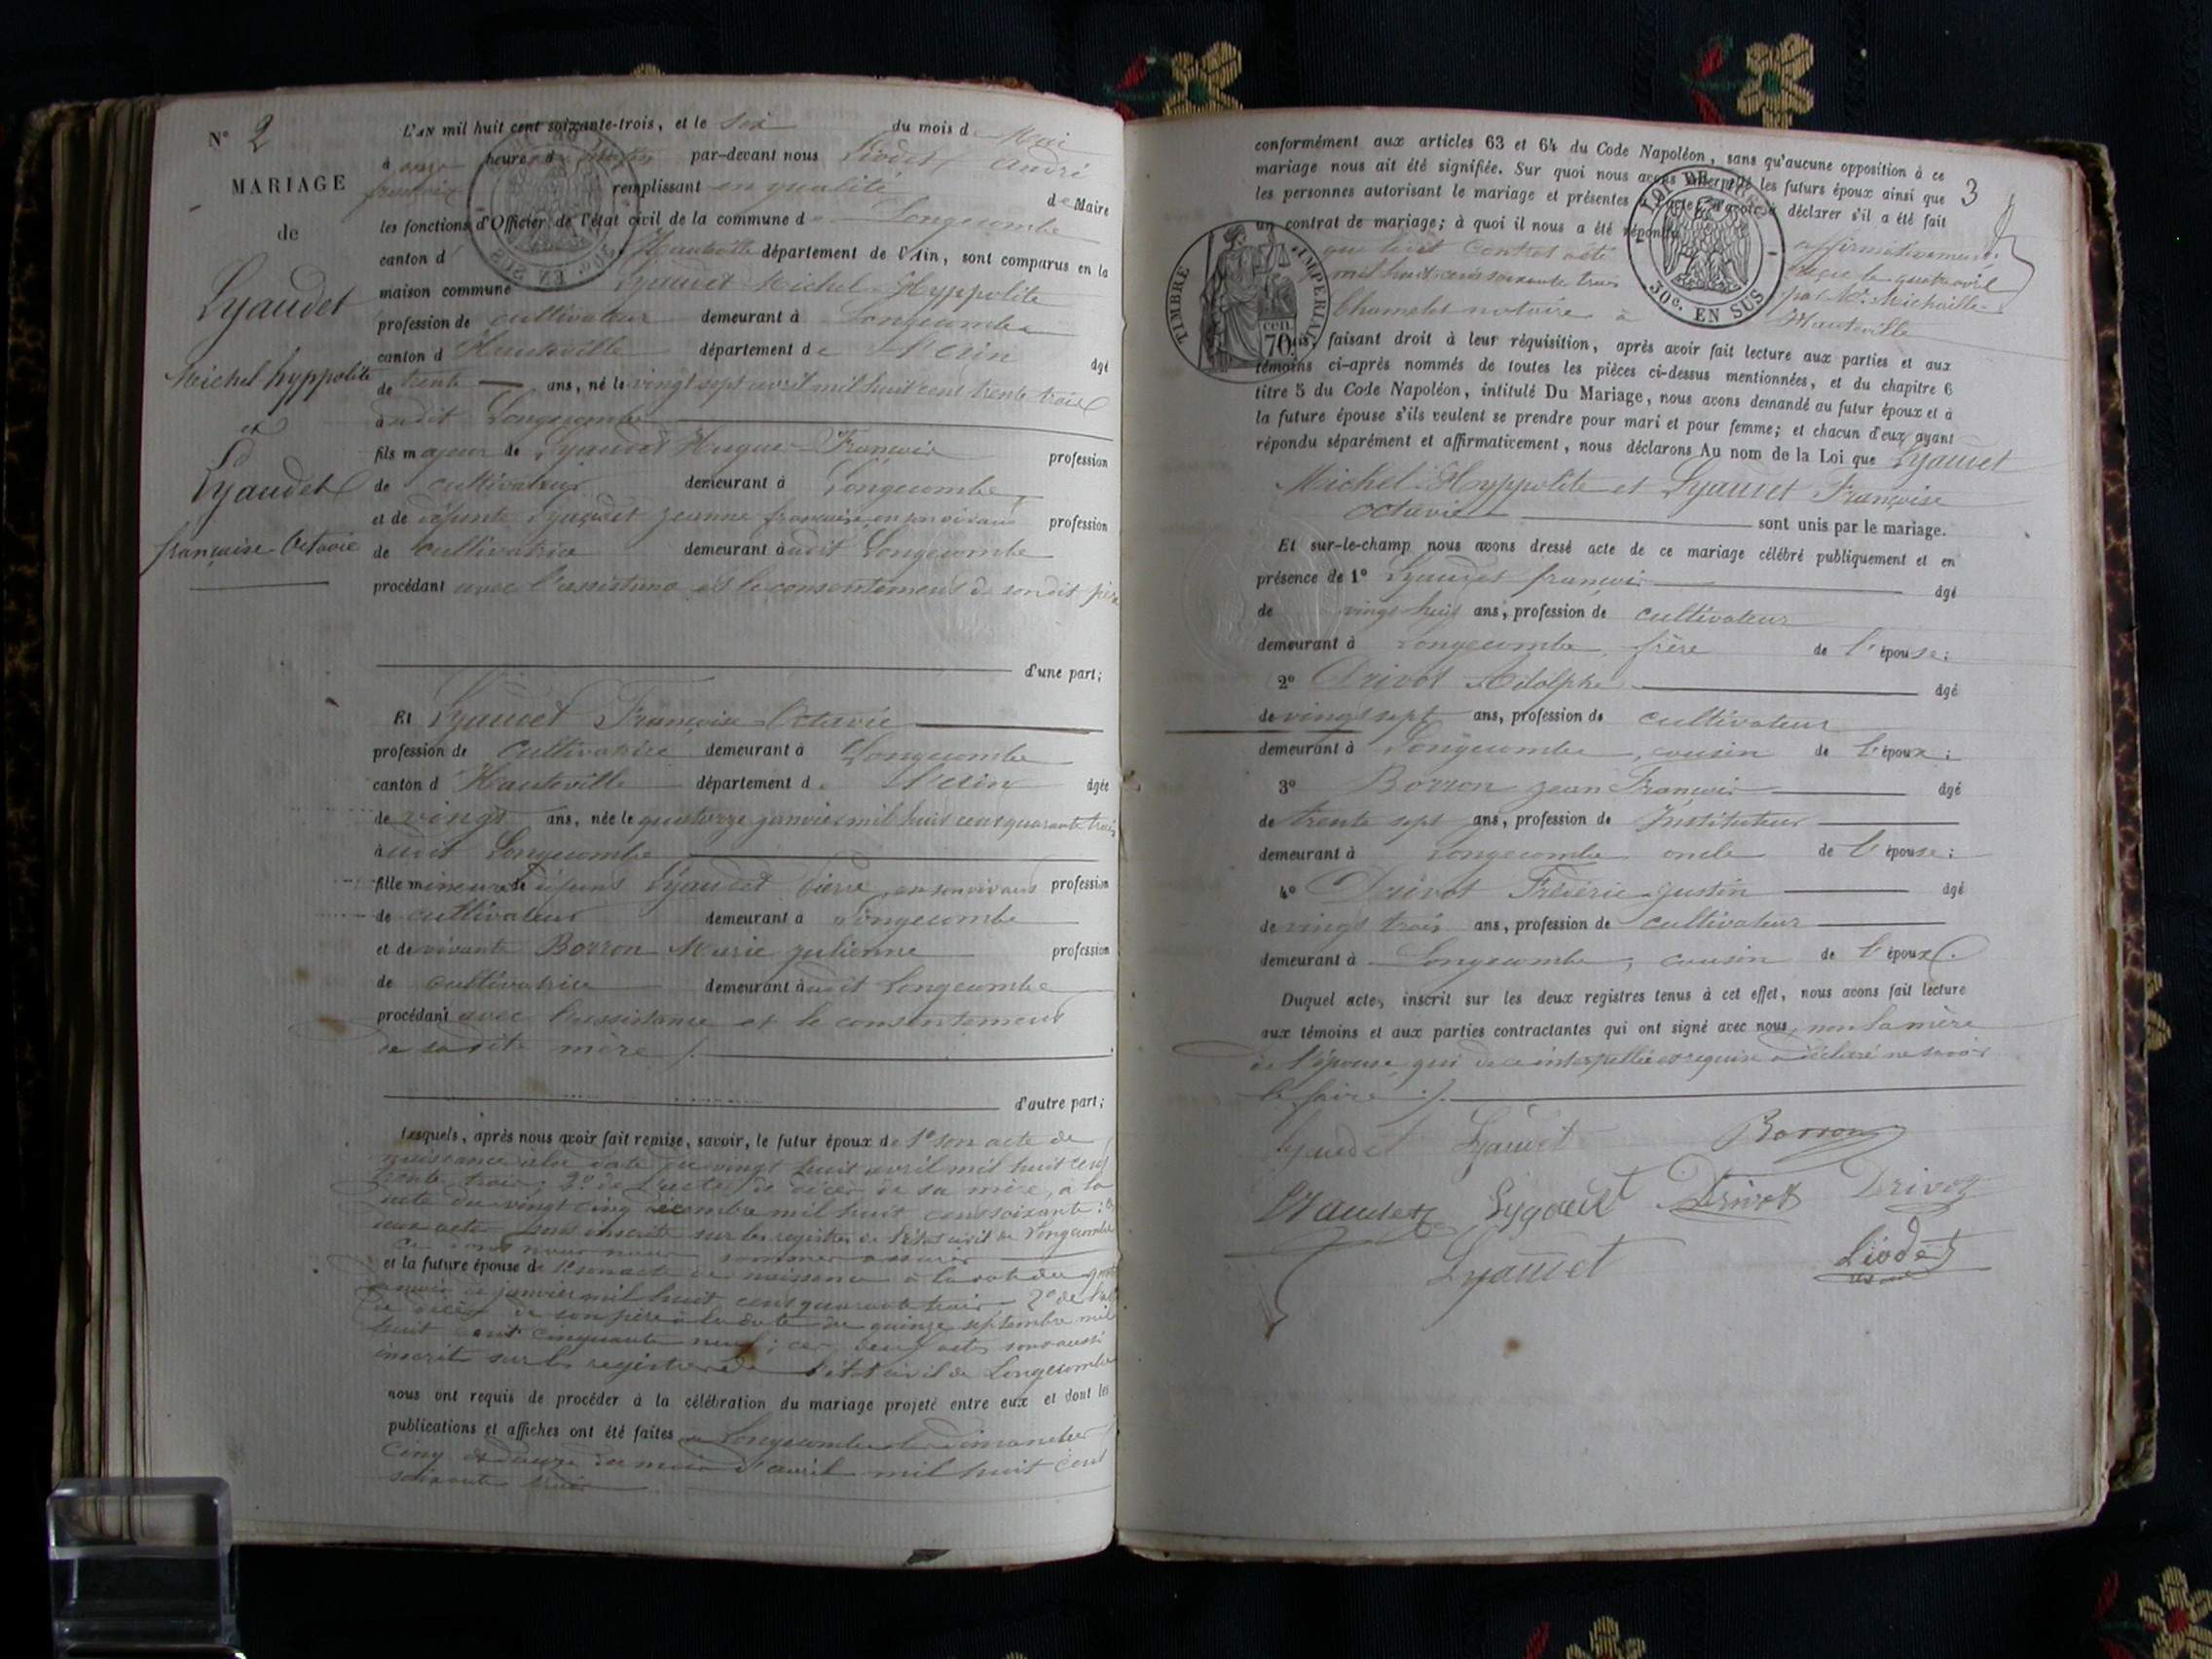 N° 2
MARIAGE
de
Lyaudet
Michel hyppolite
et
Lyaudet
françoise Octavie
L'AN mil huit cent soixante-trois, et le six du mois de Mai
à onze heures du matin par-devant nous Liodet André
françois remplissant en qualité de Maire
les fonctions d'Officier de l'état civil de la commune de Longecombe
canton d'Hauteville département de l'Ain, sont comparus en la
maison commune Lyaudet Michel Hyppolite
profession de cultivateur demeurant à Longecombe
canton d'Hauteville département de l'Ain âgé
de trente ans, né le vingt sept avril mil huit cent trente trois
à udit Longecombe
fils majeur de Lyaudet Hugue François profession
de cultivateur demeurant à Longecombe
et de défunte Lyaudet Jeanne françoise, en son vivant profession
de cultivatrice demeurant audit Longecombe
procédant avec l'assistance et le consentement de son dit père
d'une part;
Et Lyaudet Françoise Octavie
profession de cultivatrice demeurant à Longecombe
canton d'Hauteville département de l'Ain âgée
de vingt ans, née le quatorze janvier mil huit cent quarante trois
audit Longecombe
fille mineure de défunt Lyaudet Pierre, en son vivant profession
de cultivateur demeurant à Longecombe
et de vivante Borron Marie Julienne profession
de cultivatrice demeurant audit Longecombe
procédant avec l'assistance et le consentement
de sa dite mère /.
d'autre part;
Lesquels, après nous avoir fait remise, savoir, le futur époux de 1° son acte de
naissance à la date du vingt huit avril mil huit cent
trente trois; 2° de l'acte de décès de sa mère, à la
date du vingt cinq décembre mil huit cent soixante; ces
deux actes sont inscrits sur les registres de l'état civil de Longecombe
ce dont nous nous sommes assuré
et la future épouse de 1° son acte de naissance à la date du
janvier mil huit cent quarante trois 2° de l'acte
de décès de son père à la date du quinze septembre mil
huit cent cinquante neuf; ces deux actes sont aussi
inscrits sur les registres de l'état civil de Longecombe
nous ont requis de procéder à la célébration du mariage projeté entre eux et dont les
publications et affiches ont été faites à Longecombe les dimanches
cinq et douze du mois d'avril mil huit cent
soixante trois
3
conformément aux articles 63 et 64 du Code Napoléon, sans qu'aucune opposition à ce
mariage nous ait été signifiée. Sur quoi nous avons interpellé les futurs époux ainsi que
les personnes autorisant le mariage et présentes à l'acte, d'avoir à déclarer s'il a été fait
un contrat de mariage; à quoi il nous a été répondu affirmativement,
que ledit Contrat a été reçu le quatre avril
mil huit cent soixante trois par Me Michaille
Chamelet notaire à Hauteville
TIMBRE IMPERIAL
70 cen.
LOI DE
30c. EN SUS
Nous, faisant droit à leur réquisition, après avoir fait lecture aux parties et aux
témoins ci-après nommés de toutes les pièces ci-dessus mentionnées, et du chapitre 6
titre 5 du Code Napoléon, intitulé Du Mariage, nous avons demandé au futur époux et à
la future épouse s'ils veulent se prendre pour mari et pour femme; et chacun d'eux ayant
répondu séparément et affirmativement, nous déclarons Au nom de la Loi que Lyaudet
Michel Hyppolite et Lyaudet Françoise
octavie sont unis par le mariage.
Et sur-le-champ nous avons dressé acte de ce mariage célébré publiquement et en
présence de 1° Lyaudet françois âgé
de vingt huit ans, profession de cultivateur
demeurant à Longecombe, frère de l'épouse;
2° Drivot Adolphe âgé
de vingt sept ans, profession de cultivateur
demeurant à Longecombe, cousin de l'époux;
3° Borron Jean François âgé
de trente sept ans, profession de Instituteur
demeurant à Longecombe oncle de l'épouse;
4° Drivot Frédéric Justin âgé
de vingt trois ans, profession de cultivateur
demeurant à Longecombe, cousin de l'époux.
Duquel acte, inscrit sur les deux registres tenus à cet effet, nous avons fait lecture
aux témoins et aux parties contractantes qui ont signé avec nous, non la mère
de l'épouse, qui de ce interpellée et requise a déclaré ne savoir
le faire /.
Lyaudet Lyaudet Borron
Lyaudet Lyaudet Drivot Drivot
Lyaudet Liodet